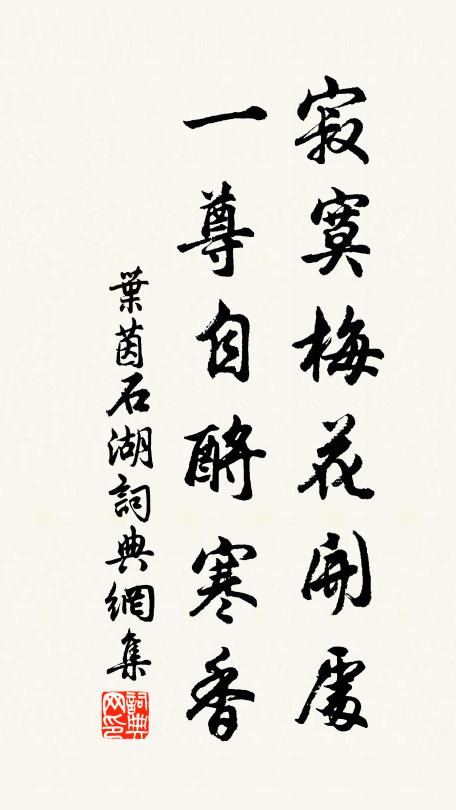 寂寞梅花開處
一尊自酹寒香
葉茵石湖詞典網集
詞典网印